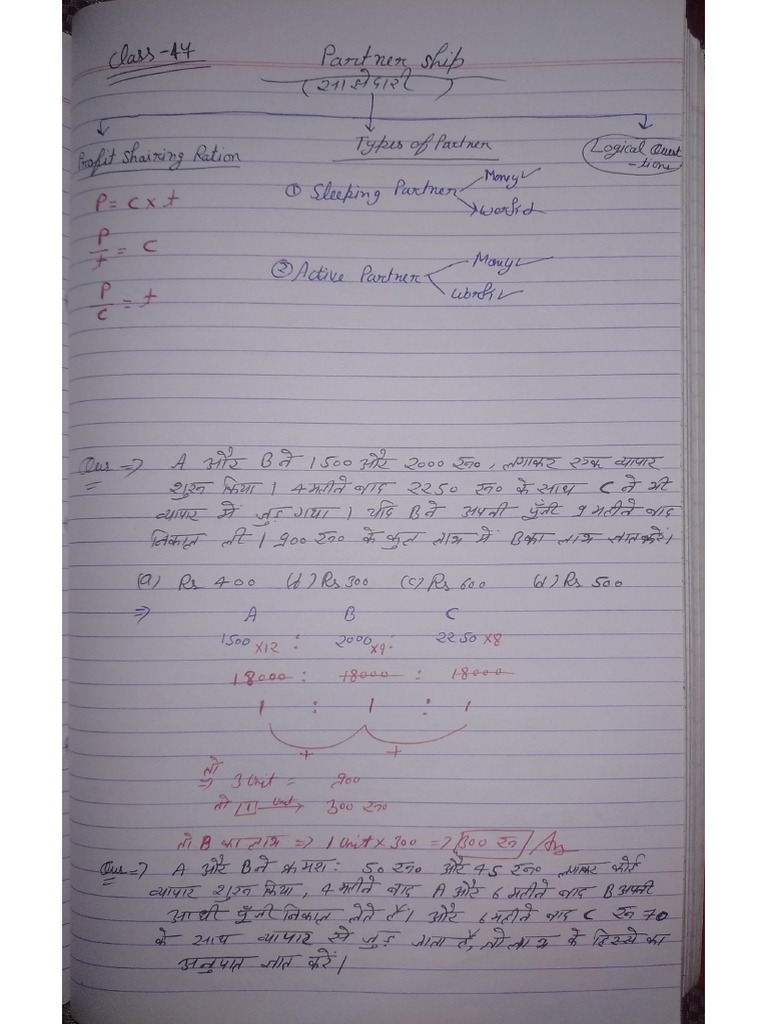 Class-47
Partner ship
(साझेदारी)
Profit Shairing Ration
Types of Partner
Logical Quest
-tions
P = C × t
P/t = C
P/C = t
① Sleeping Partner
Money ✓
Work
② Active Partner
Money ✓
Work ✓
Que ⇒ A और B ने 1500 और 2000 रु०, लगाकर एक व्यापार
शुरू किया। 4 महीने बाद 2250 रु० के साथ C ने भी
व्यापार में जुड़ गया। यदि B ने अपनी पूँजी 9 महीने बाद
निकाल ली। 900 रु० के कुल लाभ में B का लाभ ज्ञात करें।
(a) Rs 400 (b) Rs 300 (c) Rs 600 (d) Rs 500
⇒ A B C
1500 ×12 : 2000 ×9 : 2250 ×8
18000 : 18000 : 18000
1 : 1 : 1
+ +
तो
⇒ 3 Unit = 900
तो 1 Unit → 300 रु०
तो B का लाभ ⇒ 1 Unit × 300 ⇒ 300 रु / Ans
Que ⇒ A और B ने क्रमश: 50 रु० और 45 रु० लगाकर कोई
व्यापार शुरू किया, 4 महीने बाद A और 6 महीने बाद B अपनी
आधी पूँजी निकाल लेते हैं। और 6 महीने बाद C रु 70
के साथ व्यापार से जुड़ जाता है, तो लाभ के हिस्से का
अनुपात ज्ञात करें।